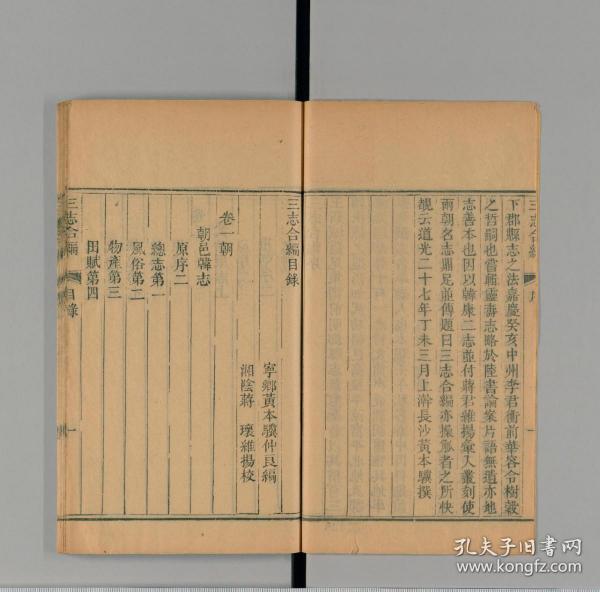 三志合編
序
一
下郡縣志之法嘉慶癸亥中州李君衝前華容令樹穀
之哲嗣也嘗輯靈壽志略於陸書論案片語無遺亦地
志善本也因以韓康二志並付蔣君維揚彙入叢刻使
兩朝名志鼎足並傳題曰三志合編亦操觚者之所快
覩云道光二十七年丁未三月上澣長沙黃本驥撰
三志合編目錄
寧鄉黃本驥仲良編
湘陰蔣 瓌維揚校
卷一朝
朝邑韓志
原序二
總志第一
風俗第二
物產第三
田賦第四
三志合編
目錄
一
孔夫子旧书网
www.kongfz.com